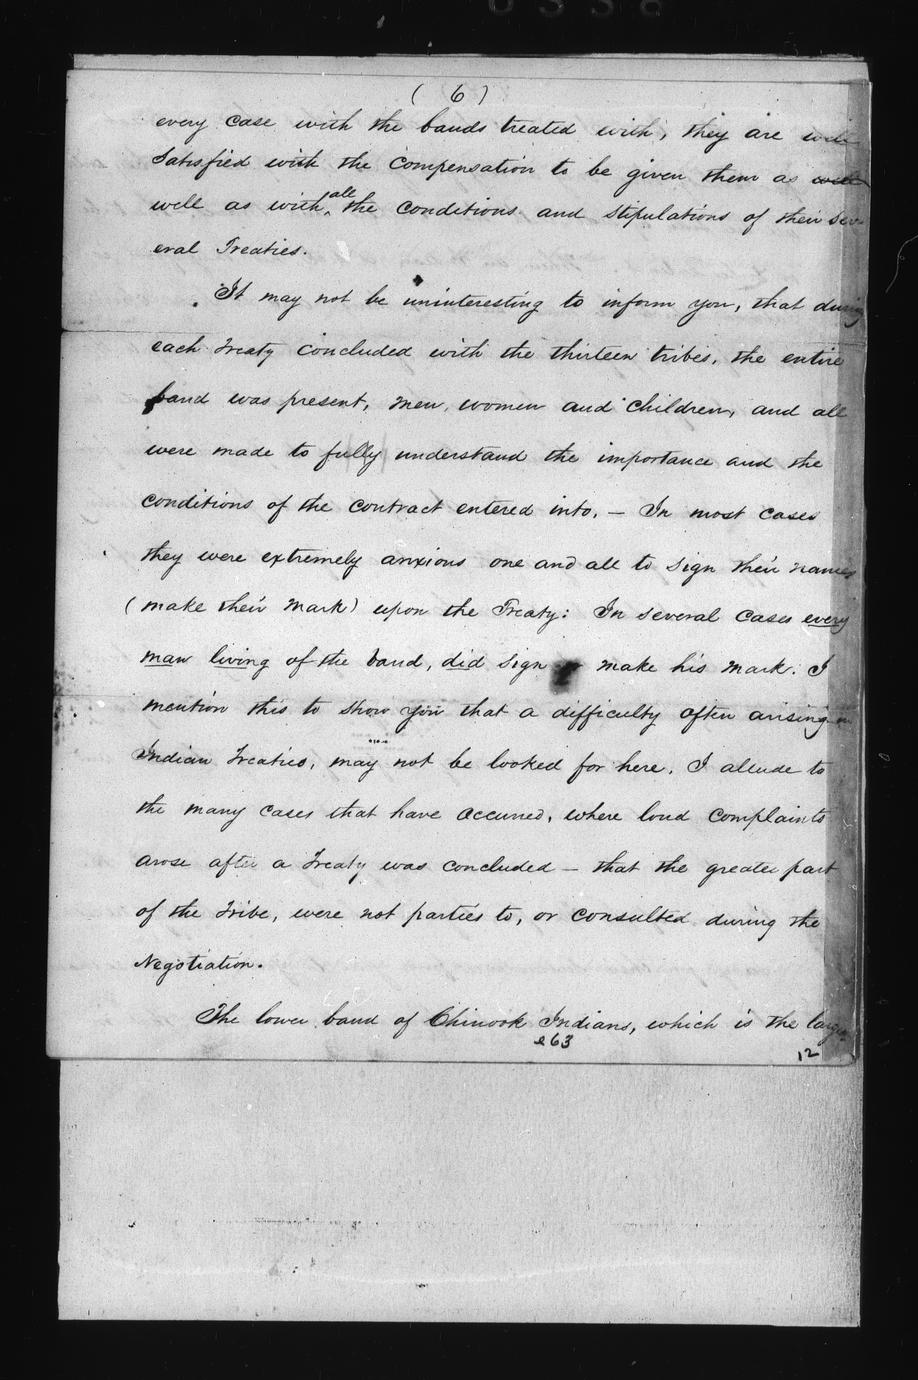 ( 6 )
every case with the bands treated with, they are well
satisfied with the compensation to be given them as well
well as with all the conditions and stipulations of their sev-
eral Treaties.
It may not be uninteresting to inform you, that during
each Treaty concluded with the thirteen tribes, the entire
band was present, men, women and children, and all
were made to fully understand the importance and the
conditions of the contract entered into. — In most cases
they were extremely anxious one and all to sign their names
(make their mark) upon the Treaty: In several cases every
man living of the band, did sign or make his mark. I
mention this to show you that a difficulty often arising in
Indian Treaties, may not be looked for here. I allude to
the many cases that have occurred, where loud complaints
arose after a Treaty was concluded — that the greater part
of the Tribe, were not parties to, or consulted during the
Negotiation.
The lower band of Chinook Indians, which is the large
e63
12